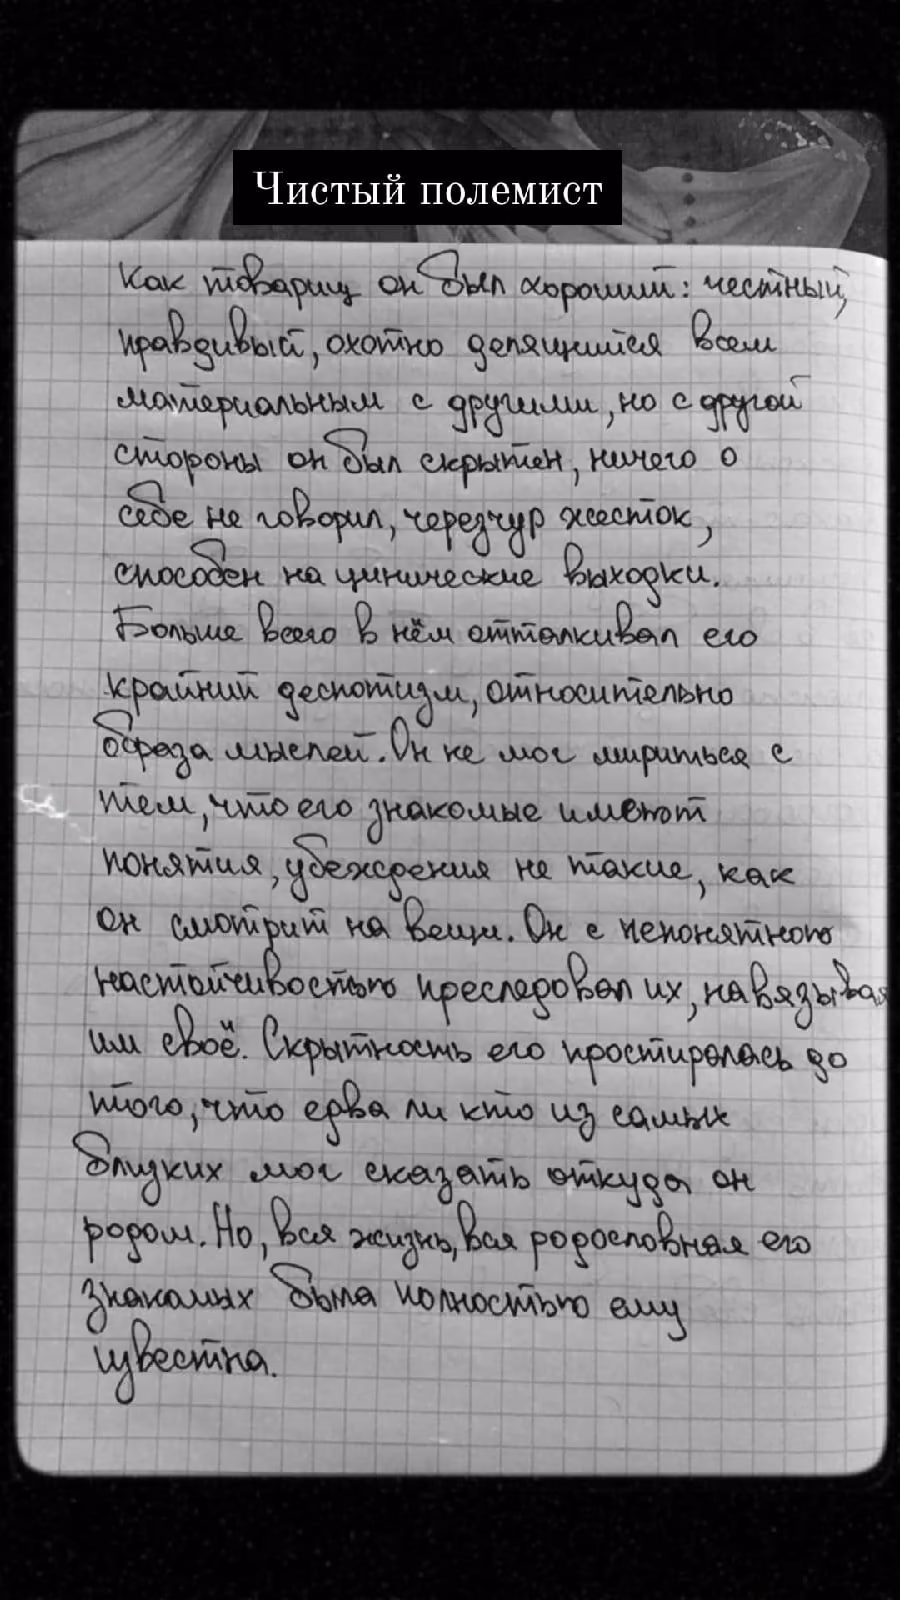 Чистый полемист
Как товарищ он был хороший: честный,
правдивый, охотно делящийся всем
материальным с другими, но с другой
стороны он был скрытен, ничего о
себе не говорил, черезчур жесток,
способен на цинические выходки.
Больше всего в нём отталкивал его
крайний деспотизм, относительно
образа мыслей. Он не мог мириться с
тем, что его знакомые имеют
понятия, убеждения не такие, как
он смотрит на вещи. Он с непонятною
настойчивостью преследовал их, навязывая
им своё. Скрытность его простиралась до
того, что едва ли кто из самых
близких мог сказать откуда он
родом. Но, вся жизнь, вся родословная его
знакомых была полностью ему
известна.